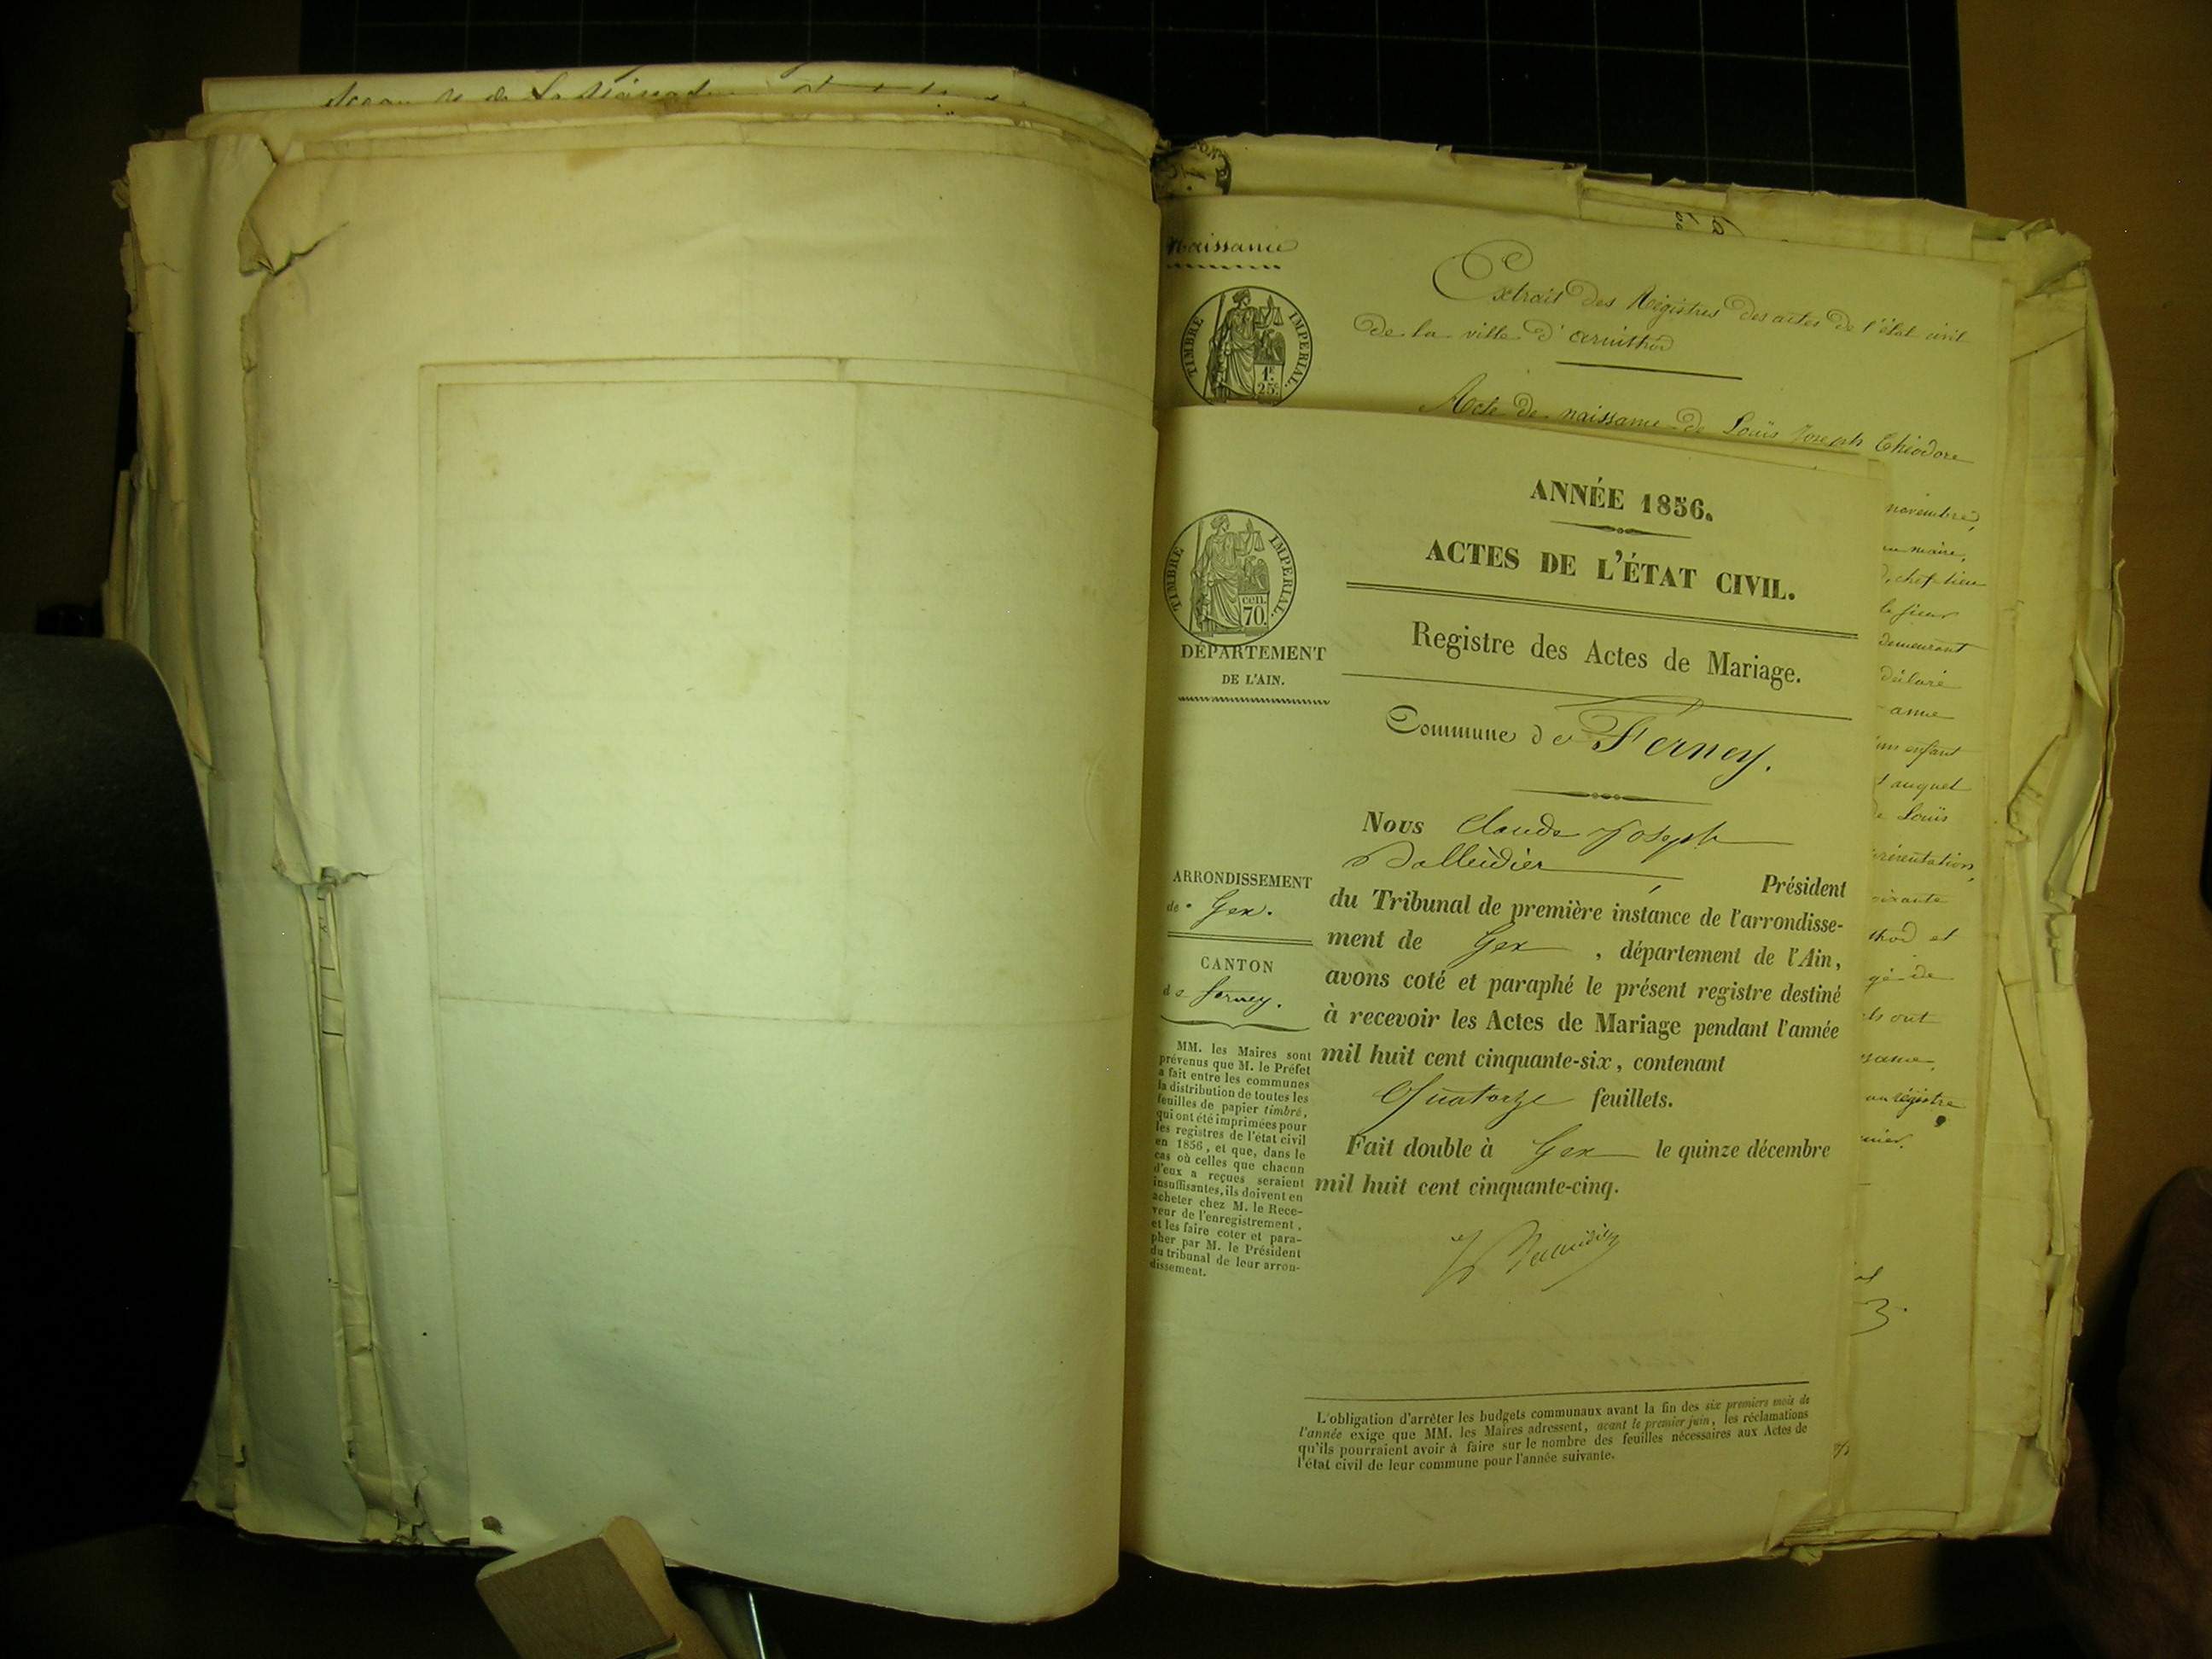 Naissance
Extrait des Régistres des actes de l'état civil
de la ville d'arinthod
TIMBRE IMPERIAL.
1F. 25c.
Acte de naissance de Louis Joseph Théodore
novembre,
maire,
chef-lieu
le sieur
demeurant
déclaré
enfant
auquel
de Louis
présentation,
soixante
et
de
ils ont
régistre
ANNÉE 1856.
ACTES DE L'ÉTAT CIVIL.
TIMBRE IMPERIAL.
cen. 70.
DÉPARTEMENT
DE L'AIN.
Registre des Actes de Mariage.
Commune de Ferney.
ARRONDISSEMENT
de Gex.
CANTON
de ferney.
MM. les Maires sont
prévenus que M. le Préfet
a fait entre les communes
la distribution de toutes les
feuilles de papier timbré,
qui ont été imprimées pour
les registres de l'état civil
en 1856, et que, dans le
cas où celles que chacun
d'eux a reçues seraient
insuffisantes, ils doivent en
acheter chez M. le Rece-
veur de l'enregistrement,
et les faire coter et para-
pher par M. le Président
du tribunal de leur arron-
dissement.
Nous Claude Joseph
Président
du Tribunal de première instance de l'arrondisse-
ment de Gex, département de l'Ain,
avons coté et paraphé le présent registre destiné
à recevoir les Actes de Mariage pendant l'année
mil huit cent cinquante-six, contenant
Quatorze feuillets.
Fait double à Gex le quinze décembre
mil huit cent cinquante-cinq.
L'obligation d'arrêter les budgets communaux avant la fin des six premiers mois de
l'année exige que MM. les Maires adressent, avant le premier juin, les réclamations
qu'ils pourraient avoir à faire sur le nombre des feuilles nécessaires aux Actes de
l'état civil de leur commune pour l'année suivante.